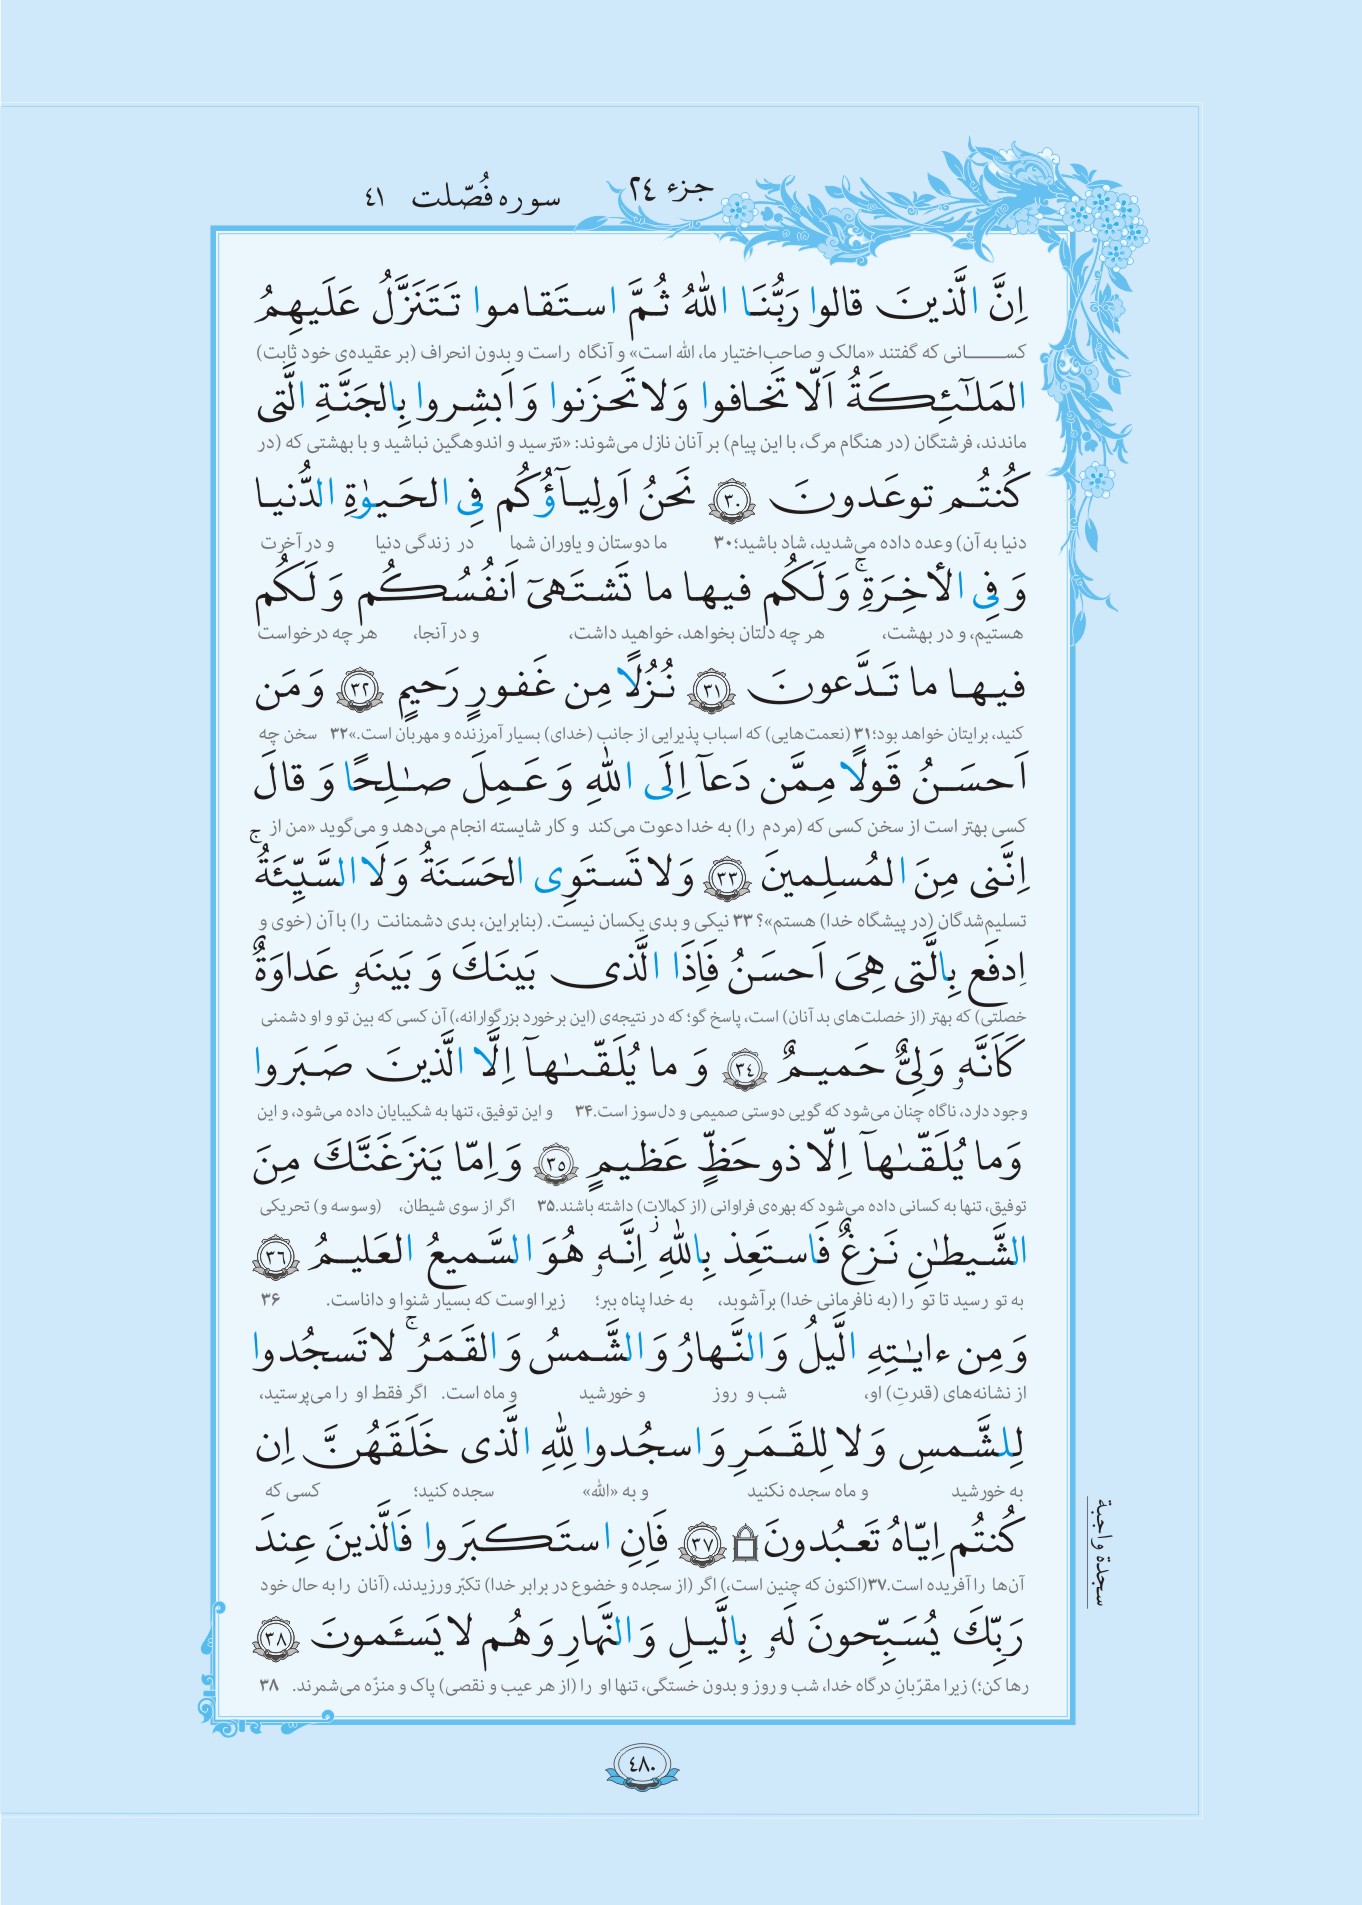 جزء ٢٤
سوره فُصّلت ٤١
اِنَّ الَّذینَ قالوا رَبُّنَا اللّٰهُ ثُمَّ استَقاموا تَتَنَزَّلُ عَلَیهِمُ
کسـانی که گفتند «مالک و صاحب‌اختیار ما، الله است» و آنگاه راست و بدون انحراف (بر عقیده‌ی خود ثابت)
المَلٰٓئِکَةُ اَلّا تَخافوا وَلا تَحزَنوا وَاَبشِروا بِالجَنَّةِ الَّتی
ماندند، فرشتگان (در هنگام مرگ، با این پیام) بر آنان نازل می‌شوند: «نترسید و اندوهگین نباشید و با بهشتی که (در
کُنتُم توعَدونَ ﴿٣٠﴾ نَحنُ اَولِیآؤُکُم فِی الحَیوٰةِ الدُّنیا
دنیا به آن) وعده داده می‌شدید، شاد باشید؛۳۰ ما دوستان و یاوران شما در زندگی دنیا و در آخرت
وَ فِی الأخِرَةِ ۚ وَ لَکُم فیها ما تَشتَهیٓ اَنفُسُکُم وَ لَکُم
هستیم، و در بهشت، هر چه دلتان بخواهد، خواهید داشت، و در آنجا، هر چه درخواست
فیها ما تَدَّعونَ ﴿٣١﴾ نُزُلًا مِن غَفورٍ رَحیمٍ ﴿٣٢﴾ وَ مَن
کنید، برایتان خواهد بود؛۳۱ (نعمت‌هایی) که اسباب پذیرایی از جانب (خدای) بسیار آمرزنده و مهربان است.»۳۲ سخن چه
اَحسَنُ قَولًا مِمَّن دَعآ اِلَی اللّٰهِ وَ عَمِلَ صٰلِحًا وَ قالَ
کسی بهتر است از سخن کسی که (مردم را) به خدا دعوت می‌کند و کار شایسته انجام می‌دهد و می‌گوید «من از
اِنَّنی مِنَ المُسلِمینَ ﴿٣٣﴾ وَلا تَستَوِی الحَسَنَةُ وَلَا السَّیِّئَةُ ۚ
تسلیم‌شدگان (در پیشگاه خدا) هستم»؟ ۳۳ نیکی و بدی یکسان نیست. (بنابراین، بدی دشمنانت را) با آن (خوی و
اِدفَع بِالَّتی هِیَ اَحسَنُ فَاِذَا الَّذی بَینَکَ وَ بَینَهٗ عَداوَةٌ
خصلتی) که بهتر (از خصلت‌های بد آنان) است، پاسخ گو؛ که در نتیجه‌ی (این برخورد بزرگوارانه،) آن کسی که بین تو و او دشمنی
کَاَنَّهٗ وَلِیٌّ حَمیمٌ ﴿٣٤﴾ وَ ما یُلَقّٰهآ اِلَّا الَّذینَ صَبَروا
وجود دارد، ناگاه چنان می‌شود که گویی دوستی صمیمی و دل‌سوز است.۳۴ و این توفیق، تنها به شکیبایان داده می‌شود، و این
وَما یُلَقّٰهآ اِلّا ذو حَظٍّ عَظیمٍ ﴿٣٥﴾ وَ اِمّا یَنزَغَنَّکَ مِنَ
توفیق، تنها به کسانی داده می‌شود که بهره‌ی فراوانی (از کمالات) داشته باشند.۳۵ اگر از سوی شیطان، (وسوسه و) تحریکی
الشَّیطٰنِ نَزغٌ فَاستَعِذ بِاللّٰهِ ز اِنَّهٗ هُوَ السَّمیعُ العَلیمُ ﴿٣٦﴾
به تو رسید تا تو را (به نافرمانی خدا) برآشوبد، به خدا پناه ببر؛ زیرا اوست که بسیار شنوا و داناست. ۳۶
وَ مِن ءایٰتِهِ الَّیلُ وَ النَّهارُ وَ الشَّمسُ وَ القَمَرُ ۚ لا تَسجُدوا
از نشانه‌های (قدرتِ) او، شب و روز و خورشید و ماه است. اگر فقط او را می‌پرستید،
لِلشَّمسِ وَ لا لِلقَمَرِ وَ اسجُدوا لِلّٰهِ الَّذی خَلَقَهُنَّ اِن
به خورشید و ماه سجده نکنید و به «الله» سجده کنید؛ کسی که
کُنتُم اِیّاهُ تَعبُدونَ ۩ ﴿٣٧﴾ فَاِنِ استَکبَروا فَالَّذینَ عِندَ
آن‌ها را آفریده است.۳۷(اکنون که چنین است،) اگر (از سجده و خضوع در برابر خدا) تکبّر ورزیدند، (آنان را به حال خود
رَبِّکَ یُسَبِّحونَ لَهٗ بِالَّیلِ وَ النَّهارِ وَ هُم لا یَسـَٔمونَ ﴿٣٨﴾
رها کن؛) زیرا مقرّبانِ درگاه خدا، شب و روز و بدون خستگی، تنها او را (از هر عیب و نقصی) پاک و منزّه می‌شمرند. ۳۸
سجدة واجبة
٤٨٠